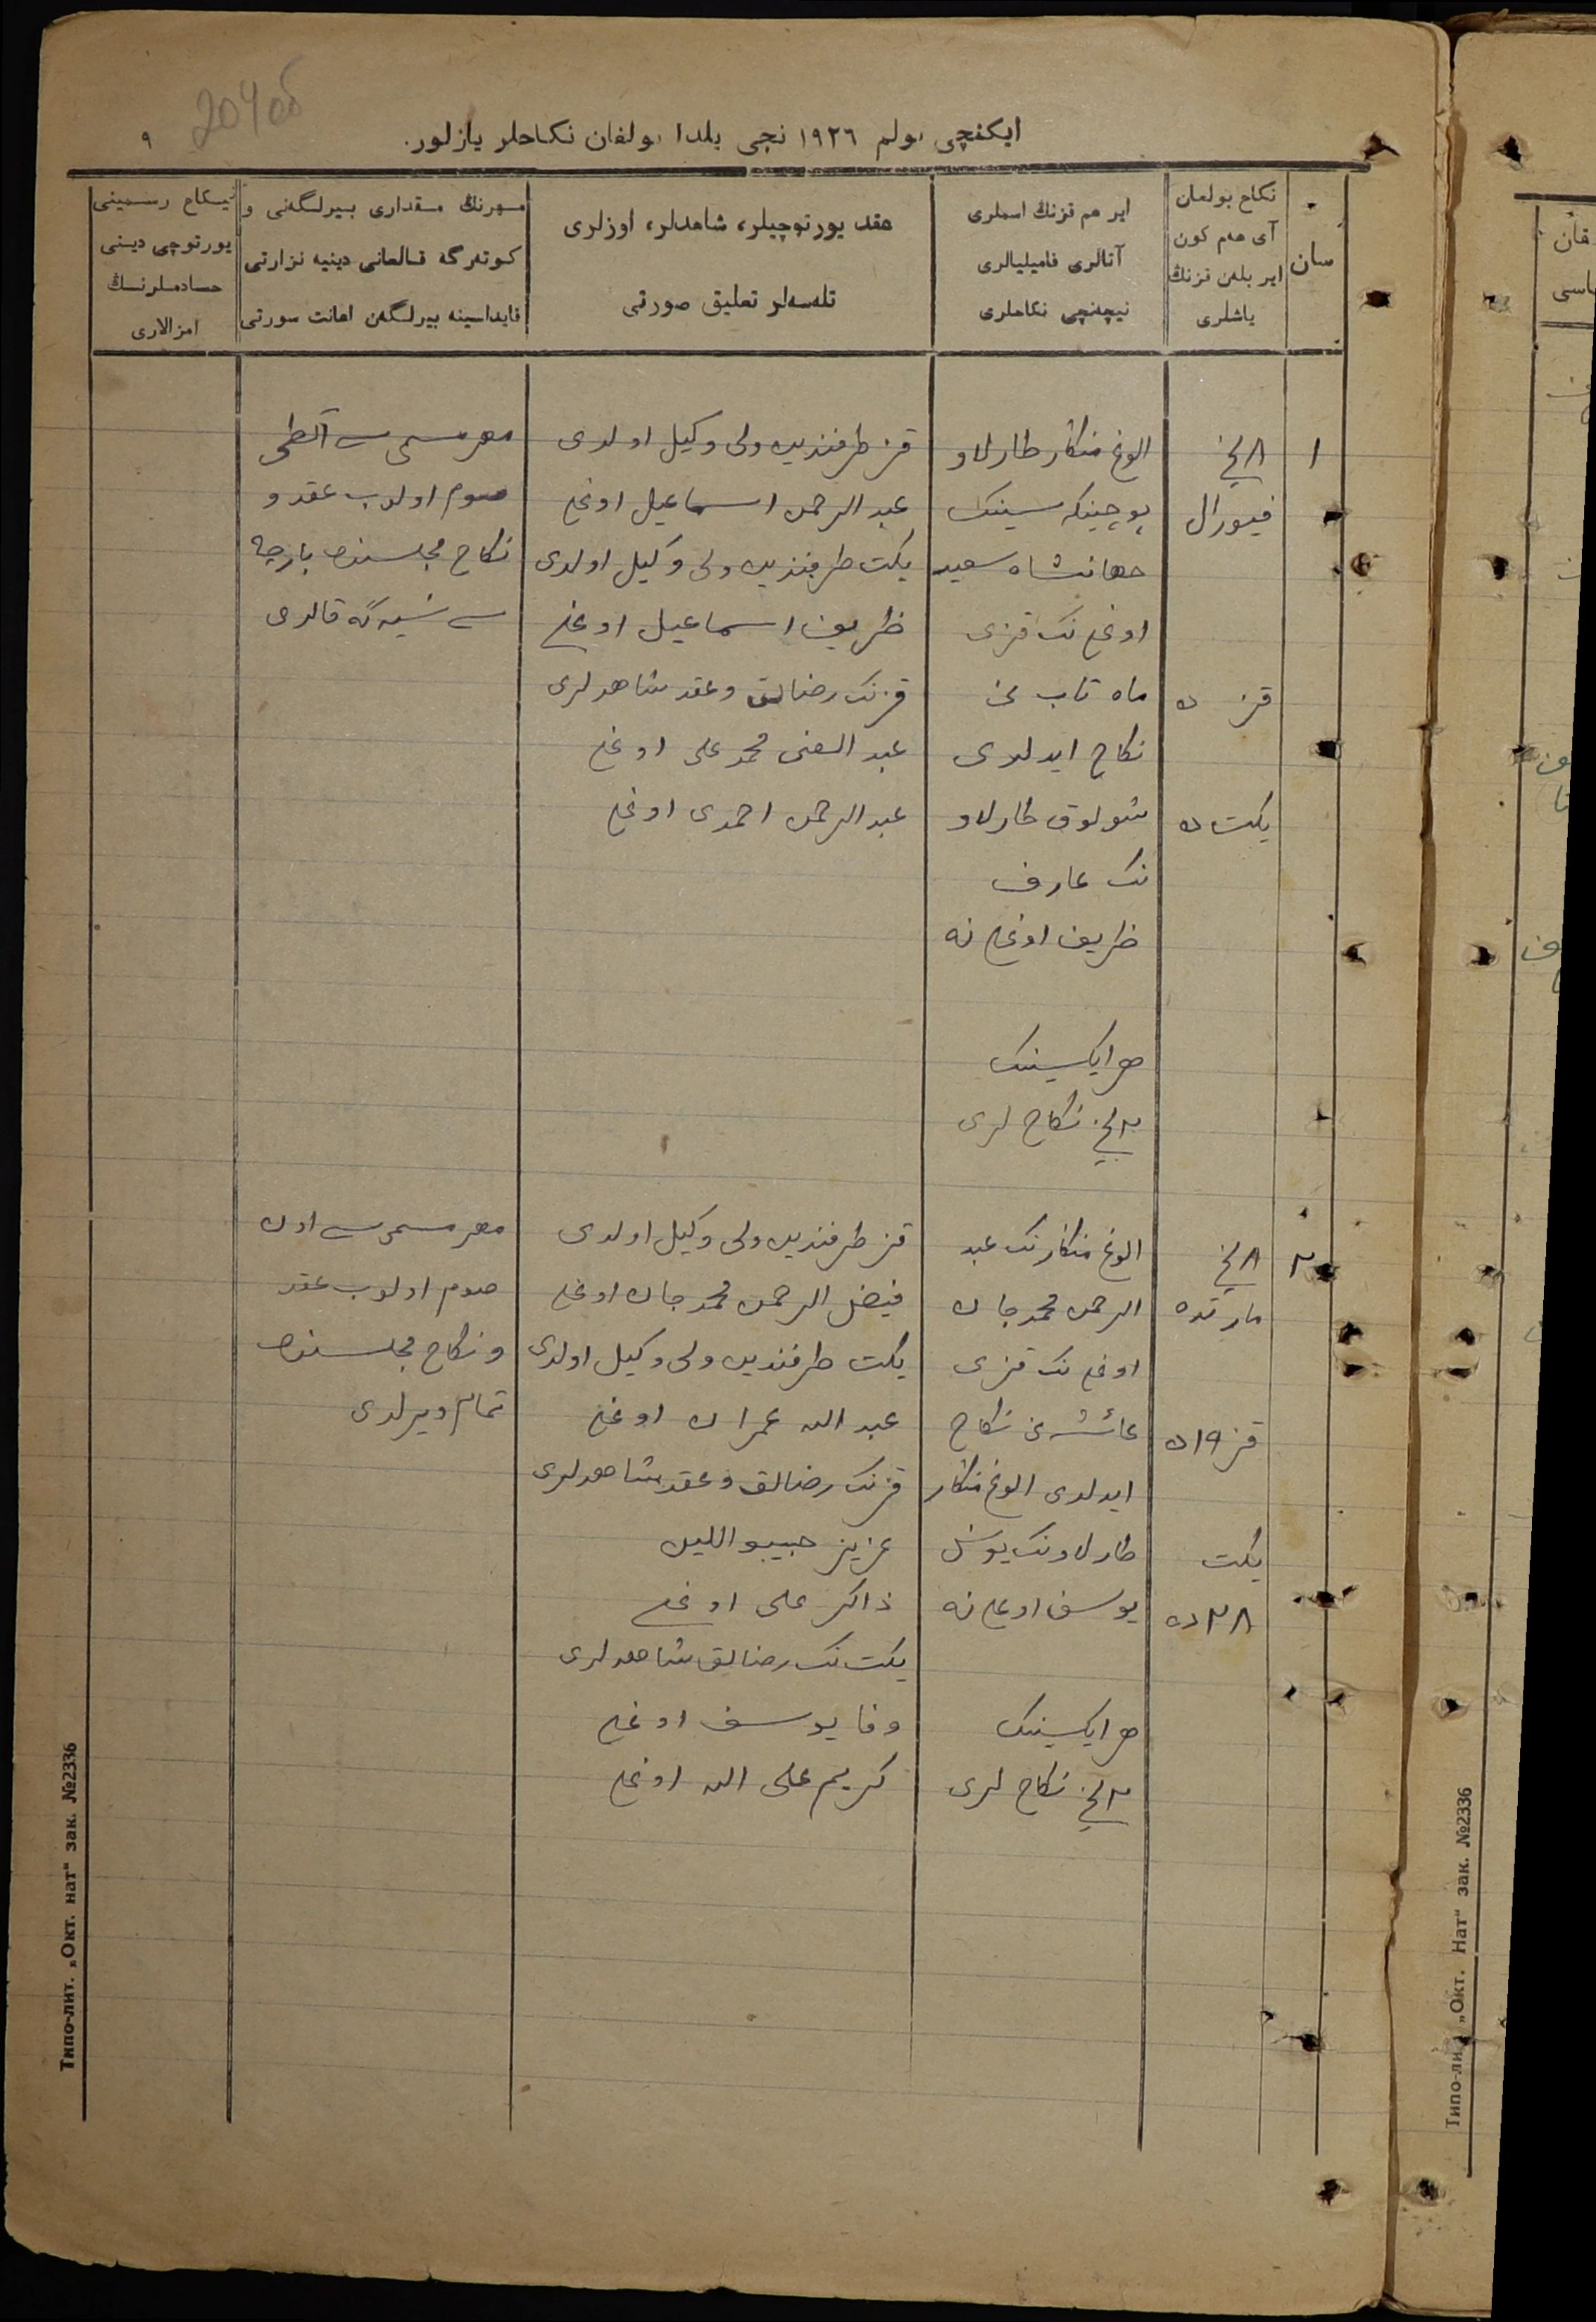 204об
ایکنچی بولم ١٩٢٦ نچی یلدا بولغان نکاحلر یازلور.
٩
سان
نکاح بولغان
آی هم کون
ایر بلەن قزنڭ
یاشلری
ایر هم قزنڭ اسملری
آتالری فامیلیالری
نیچەنچی نکاحلری
عقد یورتوچیلر، شاهدلر، اوزلری
تلەسەلر تعلیق صورتی
مهرنڭ مقداری بیرلگەنی و
کوتەرگە قالغانی دینیە نزارتی
فایداسینە بیرلگەن اعانت سورتی
نیکاح رسمینی
یورتوچی دینی
امزالاری
١
٨ نچی
فیورال
قز
یکت
الوغ منکار طارلاو
سینک
جهانشاه سعید
اوغلی نک قزی
ماه تاب نی
نکاح ایدلدی
شولوق طارلاو
نک عارف
ظریف اوغلی نه
هر ایکیسینک
٢ نچی نکاح لری
قز طرفندین ولی وکیل اولدی
عبد الرحمن اسماعیل اوغلی
یکت طرفندین ولی وکیل اولدی
ظریف اسماعیل اوغلی
قزنک رضالق و عقد شاهدلری
عبد الغنی محمد علی اوغلی
عبد الرحمن احمدی اوغلی
مهر مسمی سی آلطمی
صوم اولوب عقد و
نکاح مجلسنده بارچه
سی نسیه گه قالدی
٢
٨ نچی
مارتده
قز ١٩ ده
یکت
٢٨ ده
الوغ منکار نک عبد
الرحمن محمد جان
اوغلی نک قزی
عائشه نی نکاح
ایدلدی الوغ منکار
طارلاو نک یونس
یوسف اوغلی نه
هر ایکیسینک
٢ نچی نکاح لری
قز طرفندین ولی وکیل اولدی
فیض الرحمن محمد جان اوغلی
یکت طرفندین ولی وکیل اولدی
عبد الله عمران اوغلی
قزنک رضالق و عقد شاهدلری
عزیز حبیب
ذاکر علی اوغلی
یکت نک رضالق شاهدلری
وفا یوسف اوغلی
کریم علی الله اوغلی
مهر مسمی سی اون
صوم اولوب عقد
و نکاح مجلسنده
تمام ویرلدی
Типо-лит. „Окт. нат“ зак. №2336
Типо-лит. „Окт. Нат“ зак. №2336